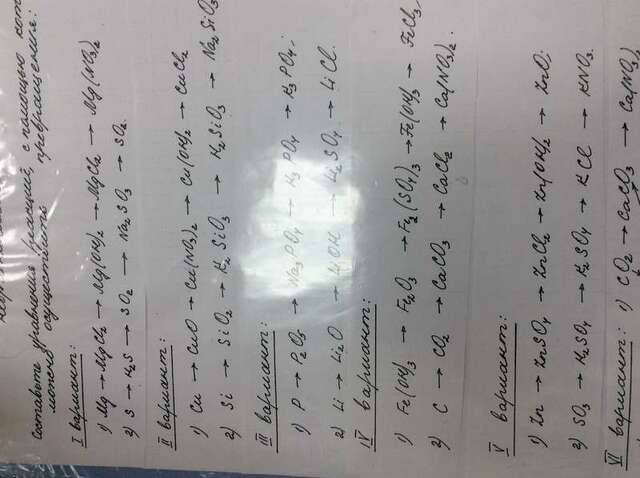 Составьте уравнения реакций, с помощью кот
можно осуществить превращения:
I вариант:
1) Mg → MgCl₂ → Mg(OH)₂ → MgCl₂ → Mg(NO₃)₂
2) S → H₂S → SO₂ → Na₂SO₃ → SO₂.
II вариант:
1) Cu → CuO → Cu(NO₃)₂ → Cu(OH)₂ → CuCl₂
2) Si → SiO₂ → K₂SiO₃ → H₂SiO₃ → Na₂SiO₃
III вариант:
1) P → P₂O₅ → Na₃PO₄ → H₃PO₄ → K₃PO₄;
2) Li → Li₂O → LiOH → Li₂SO₄ → LiCl.
IV вариант:
1) Fe(OH)₃ → Fe₂O₃ → Fe₂(SO₄)₃ → Fe(OH)₃ → FeCl₃,
2) C → CO₂ → CaCO₃ → CaCl₂ → Ca(NO₃)₂.
V вариант:
1) Zn → ZnSO₄ → ZnCl₂ → Zn(OH)₂ → ZnO;
2) SO₃ → H₂SO₄ → K₂SO₄ → KCl → KNO₃.
VI вариант: 1) CO₂ → CaCO₃ → Ca(NO₃)